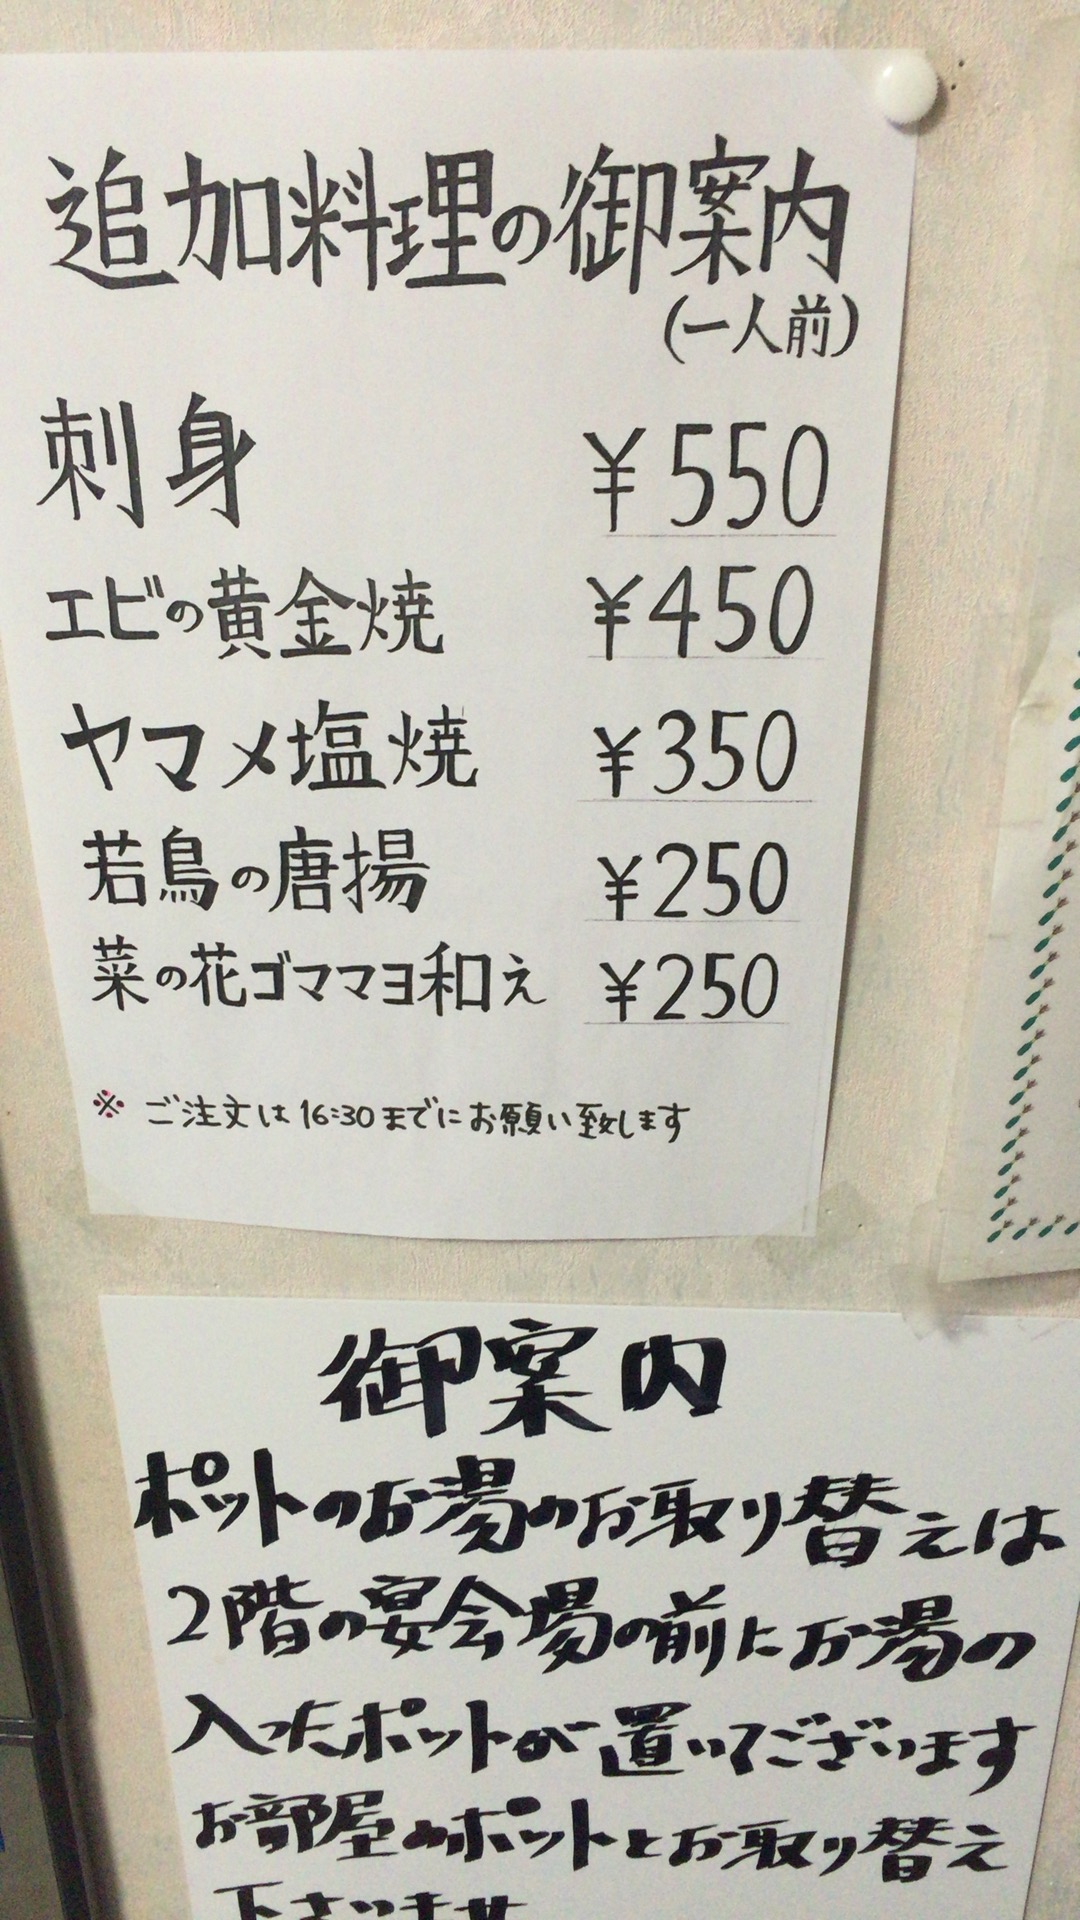 追加料理の御案内
(一人前)
刺身 ¥550
エビの黄金焼 ¥450
ヤマメ塩焼 ¥350
若鳥の唐揚 ¥250
菜の花ゴママヨ和え ¥250
※ ご注文は16:30までにお願い致します
御案内
ポットのお湯のお取り替えは
2階の宴会場の前にお湯の
入ったポットが置いてございます
お部屋のポットとお取り替え
下さいませ